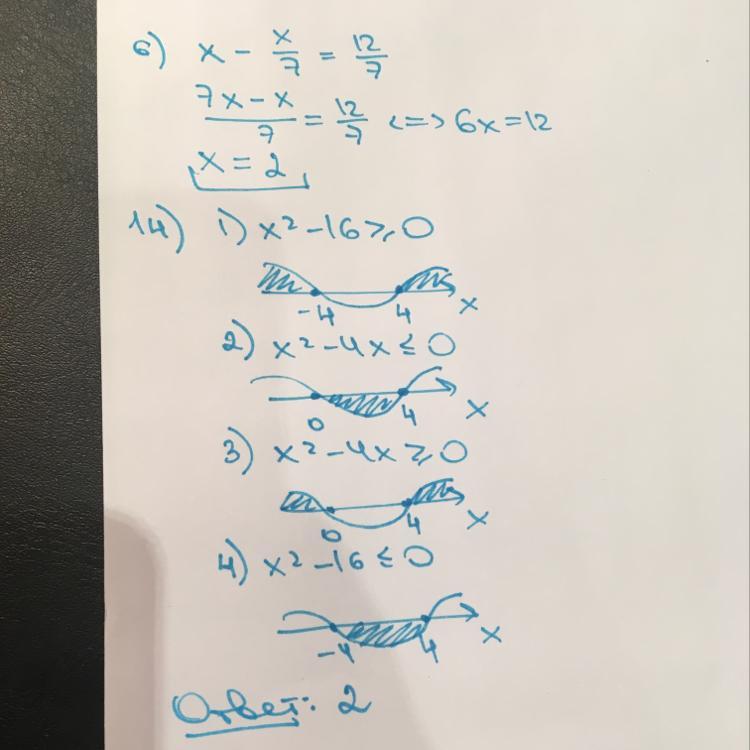 6) x - x/7 = 12/7
7x-x/7 = 12/7 <=> 6x=12
x = 2
14) 1) x²-16⩾0
-4 4 x
2) x²-4x≤0
0 4 x
3) x²-4x⩾0
0 4 x
4) x²-16≤0
-4 4 x
Ответ: 2